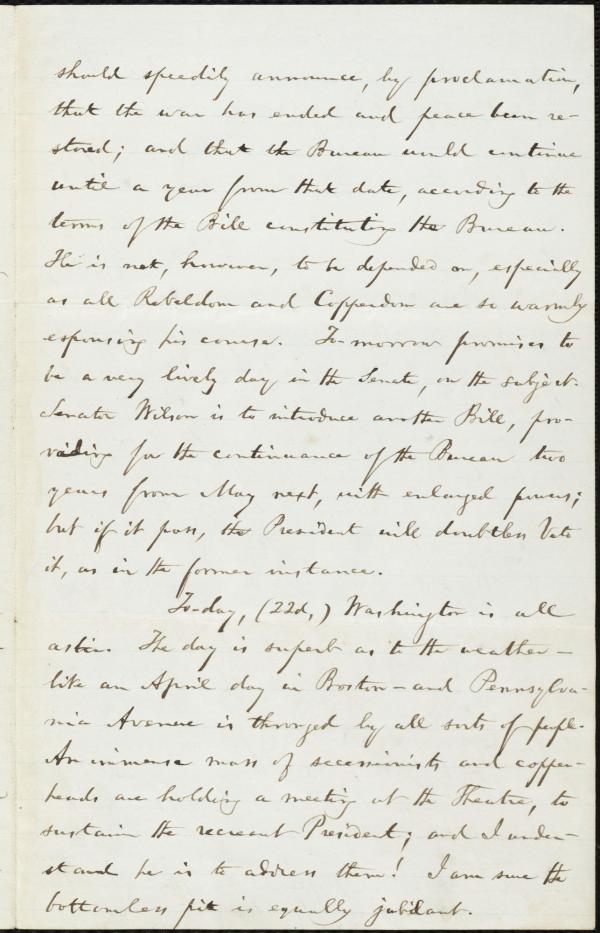 should speedily announce, by proclamation,
that the war has ended and peace been re-
stored; and that the Bureau would continue
until a year from that date, according to the
terms of the Bill constituting the Bureau.
He is not, however, to be depended on, especially
as all Rebeldom and Copperdom are so warmly
espousing his course. To-morrow promises to
be a very lively day in the Senate, on the subject.
Senator Wilson is to introduce another Bill, pro-
viding for the continuance of the Bureau two
years from May next, with enlarged powers;
but if it pass, the President will doubtless Veto
it, as in the former instance.
To-day, (22d,) Washington is all
astir. The day is superb as to the weather—
like an April day in Boston—and Pennsylva-
nia Avenue is thronged by all sorts of people.
An immense mass of secessionists and copper-
heads are holding a meeting at the Theatre, to
sustain the recreant President; and I under-
stand he is to address them! I am sure the
bottomless pit is equally jubilant.